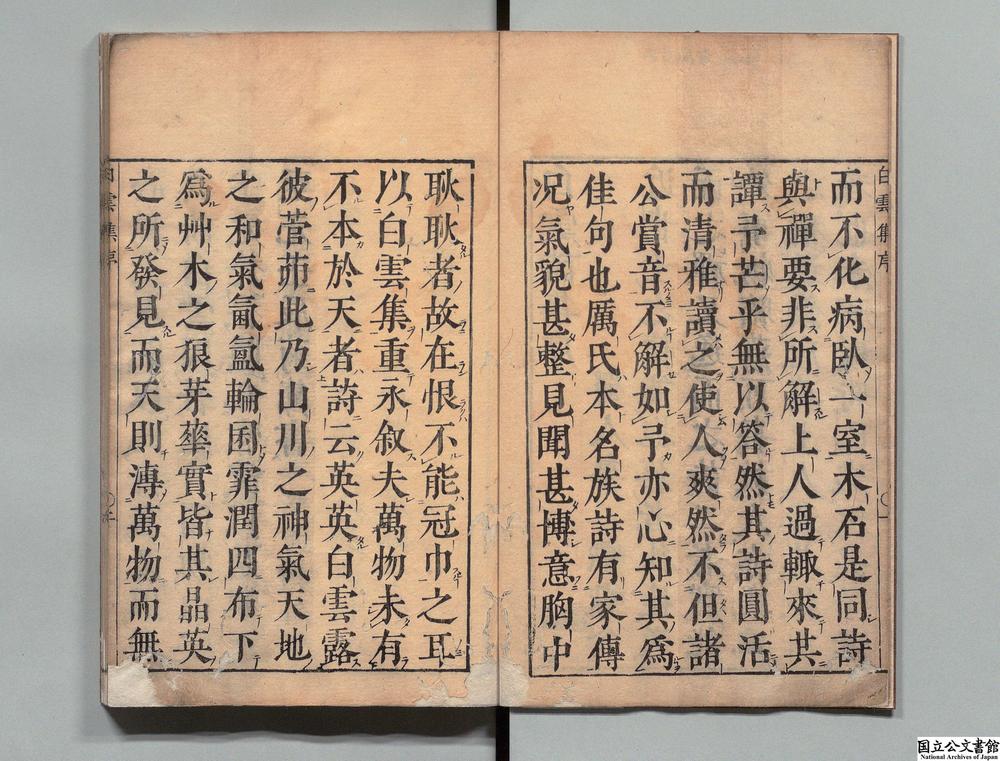 白雲集序
而不化病臥一室木石是同詩
與禪要非所解上人過輙來其
譚予芒乎無以答然其詩圓活
而清雅讀之使人爽然不但諸
公賞音不解如予亦心知其爲
佳句也厲氏本名族詩有家傳
况氣貌甚整見聞甚博意胸中
耿耿者故在恨不能冠巾之耳
以白雲集重永叙夫萬物未有
不本於天者詩云英英白雲露
彼菅茆此乃山川之神氣天地
之和氣氤氳輪囷霏潤四布下
爲艸木之狼芽蕐實皆其晶英
之所發見而天則溥萬物而無
白雲集序
国立公文書館
National Archives of Japan